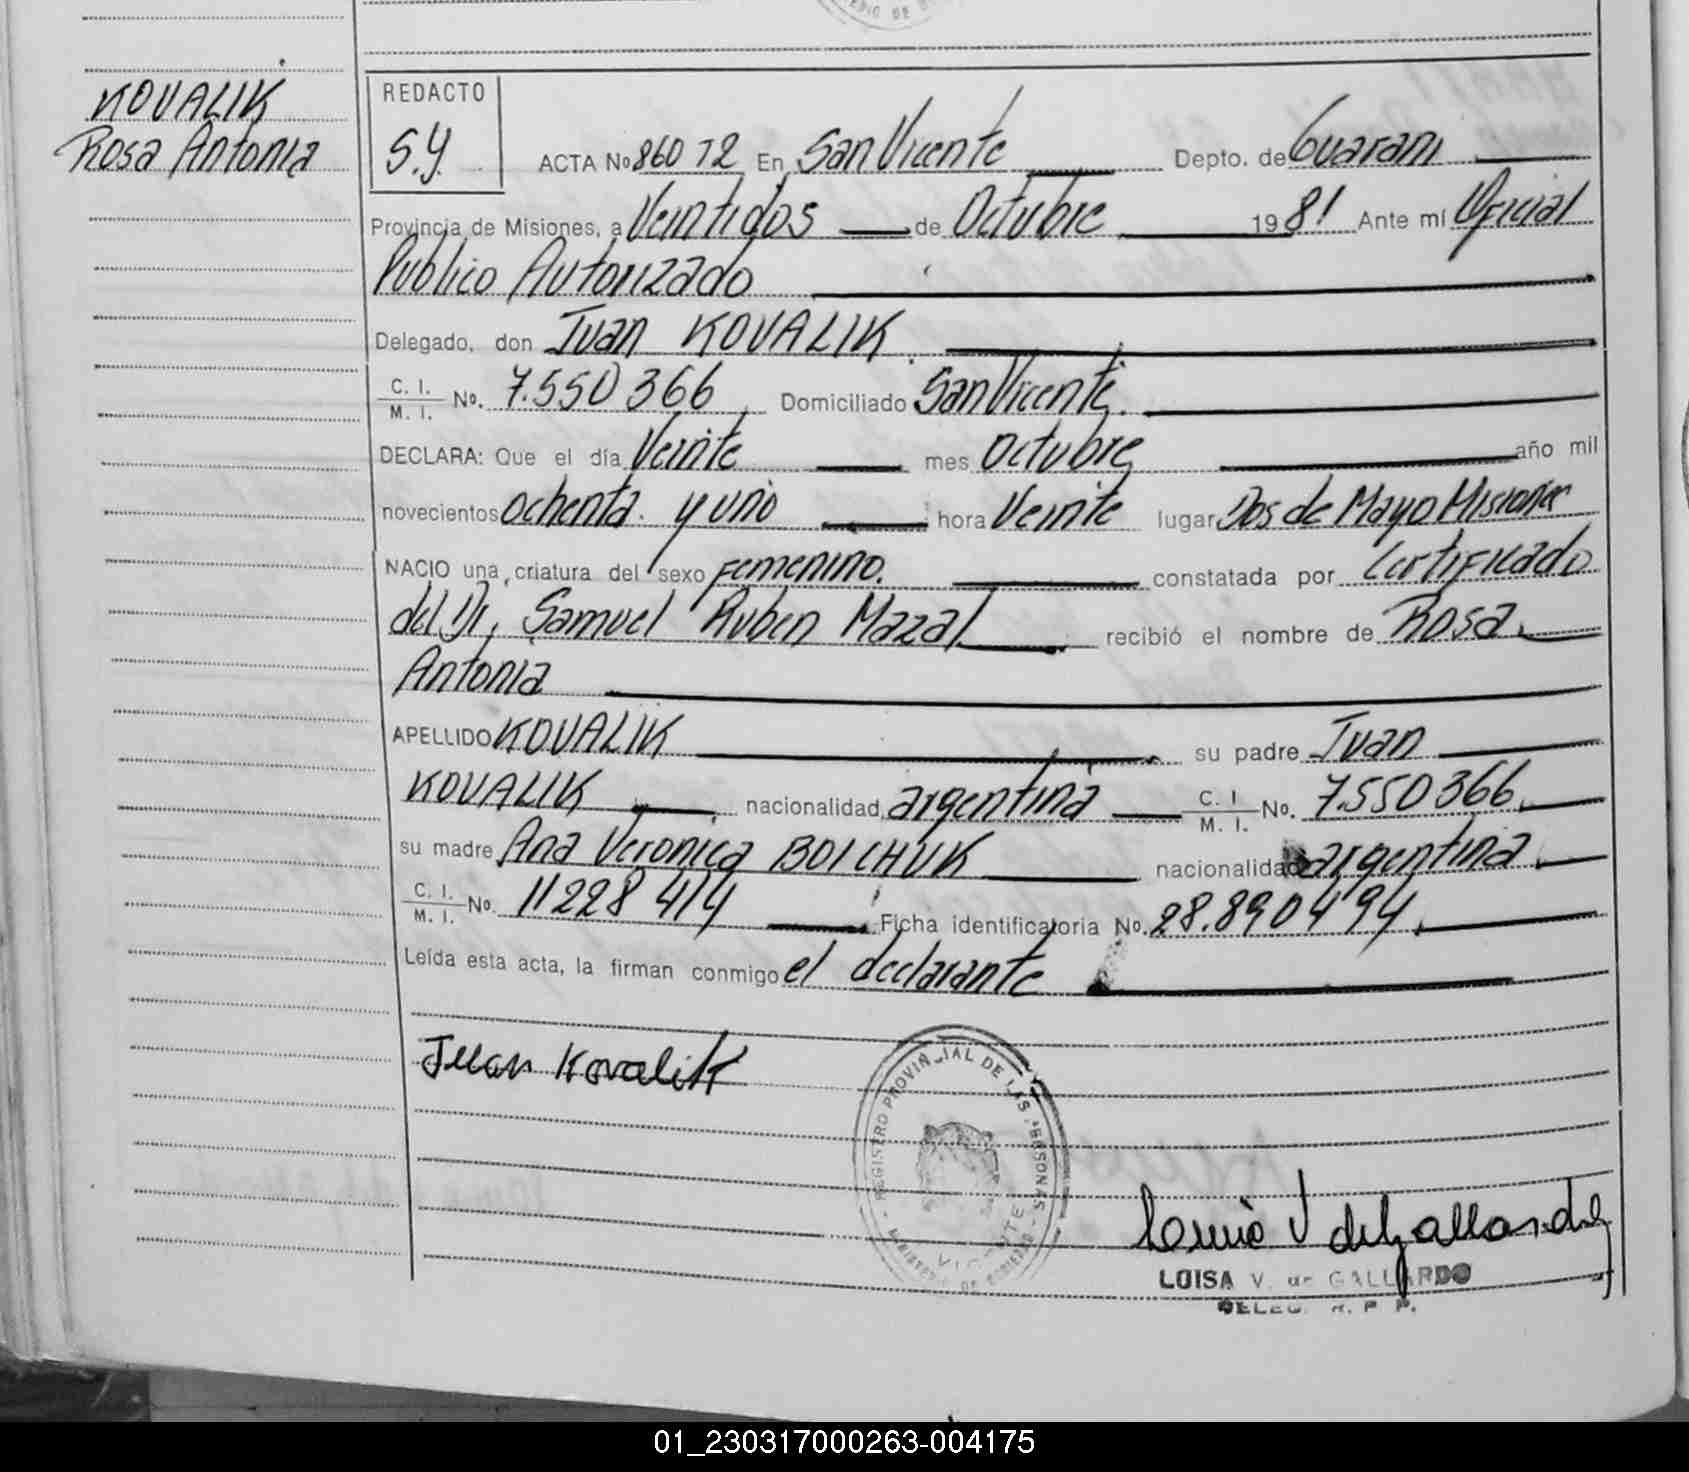 KOVALIK
Rosa Antonia
REDACTO
S.Y.
ACTA No 860 T2 En San Vicente Depto. de Guarani
Provincia de Misiones, a Veintidos de Octubre 1981 Ante mí Oficial
Publico Autorizado
Delegado, don Juan KOVALIK
C. I.
M. I. No. 7.550366 Domiciliado San Vicente.
DECLARA: Que el día Veinte mes Octubre año mil
novecientos ochenta y uno hora Veinte lugar Dos de Mayo Misiones
NACIO una criatura del sexo Femenino. constatada por Certificado
del Dr. Samuel Ruben Mazal recibió el nombre de Rosa
Antonia
APELLIDO KOVALIK su padre Juan
KOVALIK nacionalidad argentina C. I.
M. I. No. 7.550366
su madre Ana Veronica BOICHUK nacionalidad argentina
C. I.
M. I. No. 11228414 Ficha identificatoria No. 28.890494
Leída esta acta, la firman conmigo el declarante
Juan Kovalik
REGISTRO PROVINCIAL DE LAS PERSONAS
MINISTERIO DE GOBIERNO
V. de Gallardo
LUISA V. de GALLARDO
DELEG. R. P. P.
01_230317000263-004175